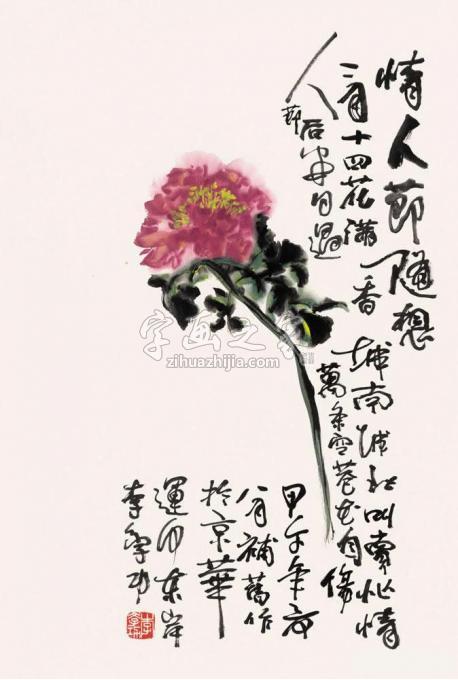 情人節隨想
二月十四花满香城南城北叫賣忙情
人節后半日過萬条空巷花自傷
甲午年
補舊作
於京華
運河東岸
李
字画之家
zihuazhijia.com